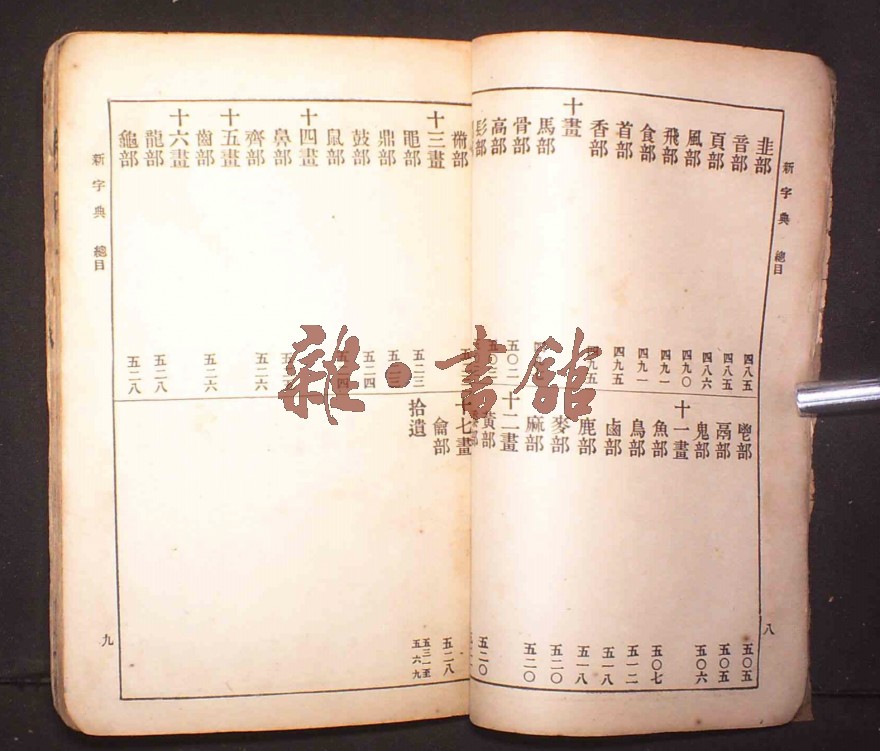 新字典 總目
韭部 四八五
音部 四八五
頁部 四八六
風部 四九〇
飛部 四九一
食部 四九一
首部 四九五
香部 四九五
十畫
馬部
骨部 五〇二
高部
髟部
鬯部 五〇五
鬲部 五〇五
鬼部 五〇六
十一畫
魚部 五〇七
鳥部 五一二
鹵部 五一八
鹿部 五一八
麥部 五二〇
麻部 五二〇
十二畫
黃部 五二〇
八
新字典 總目
黹部
十三畫
黽部 五二三
鼎部
鼓部 五二四
鼠部
十四畫
鼻部
齊部 五二六
十五畫
齒部 五二六
十六畫
龍部 五二八
龜部 五二八
十七畫
龠部 五二八
拾遺 五三一至五六九
九
雜·書館